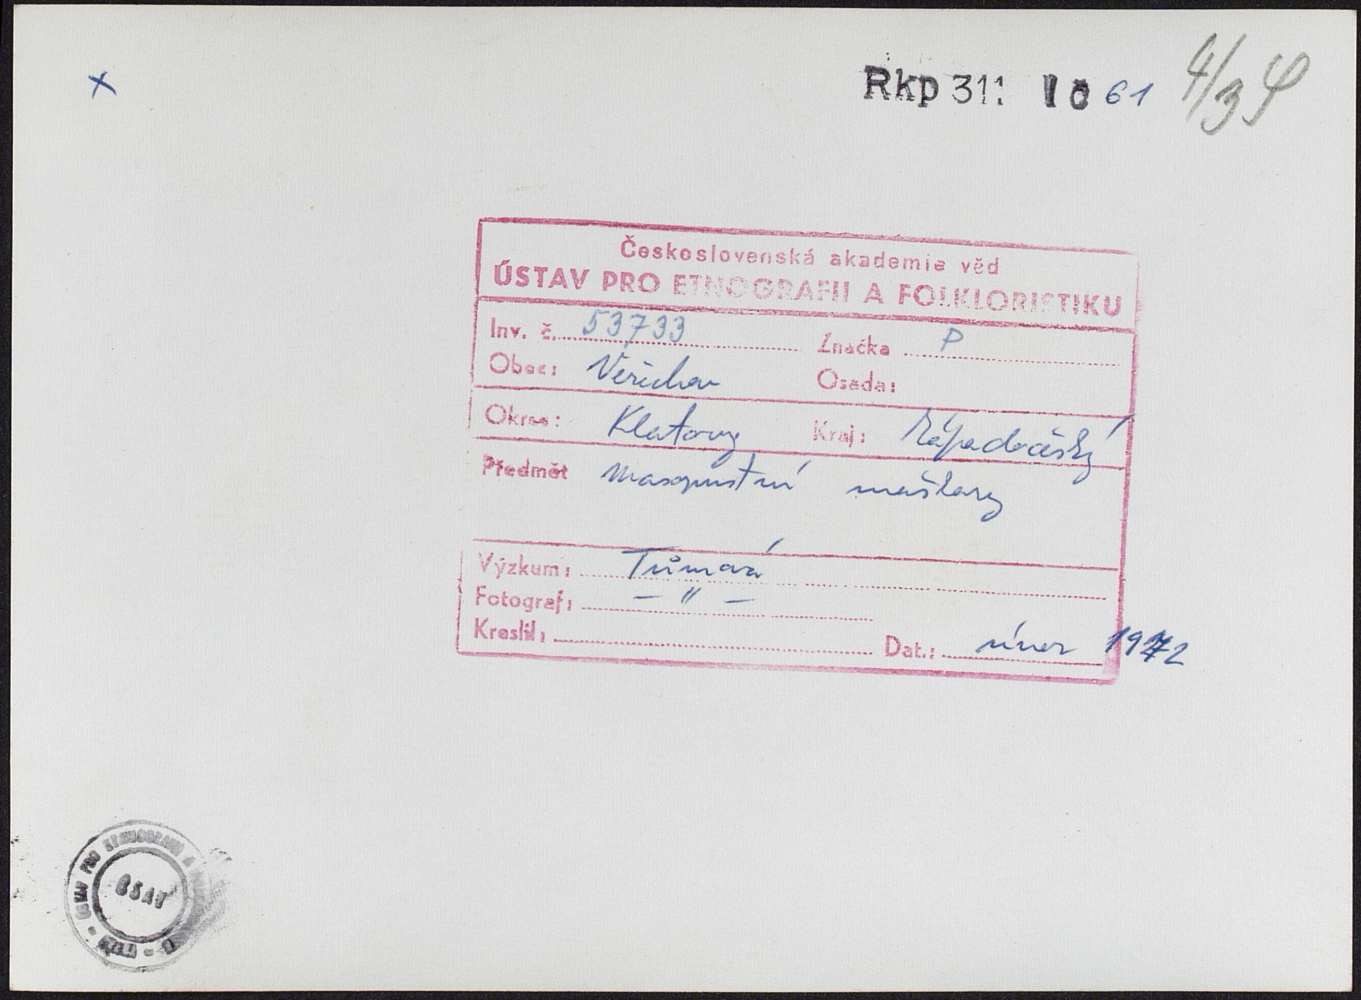 x
Rkp 311 61 4/34
Československá akademie věd
ÚSTAV PRO ETNOGRAFII A FOLKLORISTIKU
Inv. č. 53733 Značka P
Obec: Věřechov Osada:
Okres: Klatovy Kraj: Západočeský
Předmět masopustní maškary
Výzkum: Tůmová
Fotograf: – " –
Kreslil: Dat.: únor 1972
ÚSTAV PRO ETNOGRAFII A
ČSAV